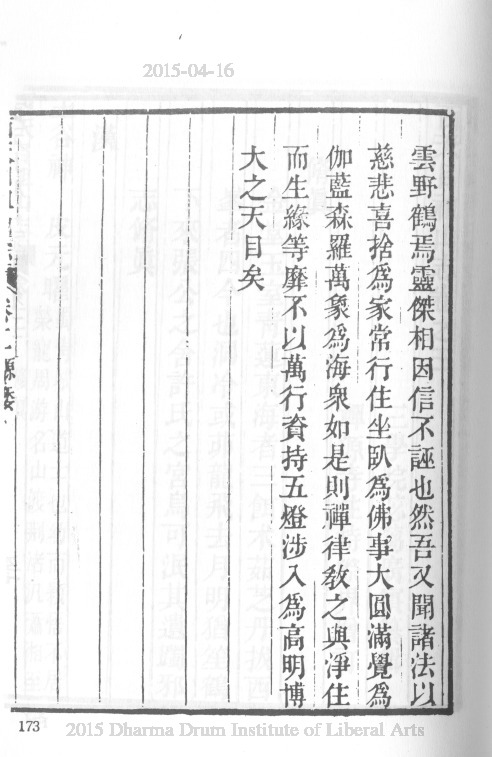 2015-04-16
雲野鶴焉靈傑相因信不誣也然吾又聞諸法以
慈悲喜捨為家常行住坐臥為佛事大圓滿覺為
伽藍森羅萬象為海衆如是則禪律教之與淨住
而生緣等靡不以萬行資持五燈涉入為高明博
大之天目矣
173
2015 Dharma Drum Institute of Liberal Arts